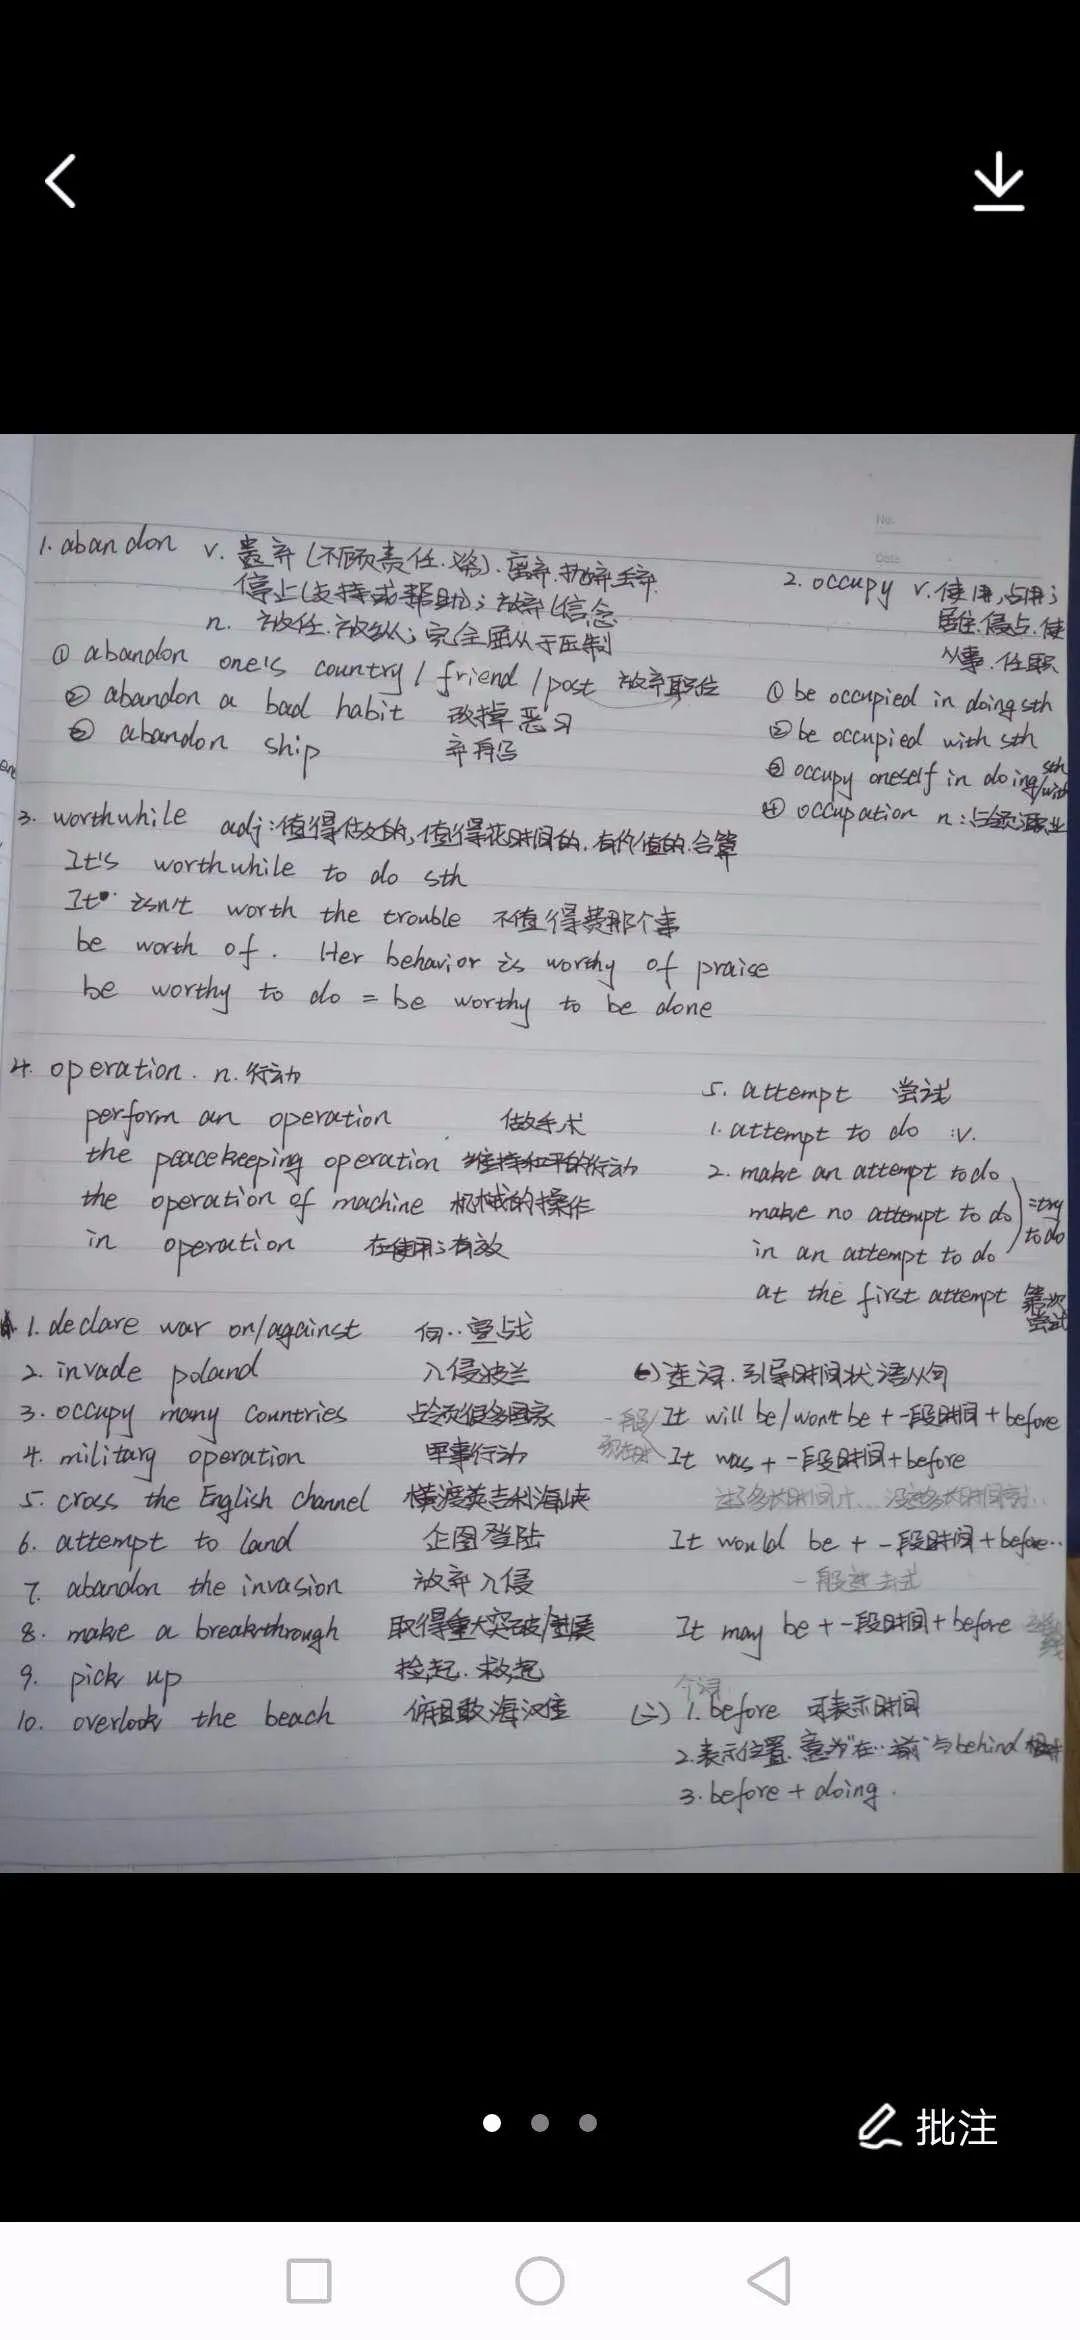 No.
Date
1. abandon v. 遗弃(不顾责任.义务).离弃.抛弃丢弃.
停止(支持或帮助);放弃(信念
n. 放任.放纵;完全屈从于压制
① abandon one's country / friend / post 放弃职位
② abandon a bad habit 改掉恶习
③ abandon ship 弃船
2. occupy v. 使用,占用;
居住.侵占.使
从事.任职
① be occupied in doing sth
② be occupied with sth
③ occupy oneself in doing sth/with
④ occupation n:占领;职业
3. worthwhile adj:值得做的,值得花时间的.有价值的.合算
It's worthwhile to do sth
It isn't worth the trouble 不值得费那个事
be worth of. Her behavior is worthy of praise
be worthy to do = be worthy to be done
4. operation. n. 行动
perform an operation 做手术
the peacekeeping operation 维持和平的行动
the operation of machine 机械的操作
in operation 在使用;有效
5. attempt 尝试
1. attempt to do :v.
2. make an attempt to do
make no attempt to do =try to do
in an attempt to do
at the first attempt 第一次尝试
1. declare war on/against 向..宣战
2. invade poland 入侵波兰
3. occupy many countries 占领很多国家
4. military operation 军事行动
5. cross the English channel 横渡英吉利海峡
6. attempt to land 企图登陆
7. abandon the invasion 放弃入侵
8. make a breakthrough 取得重大突破/进展
9. pick up 捡起.救起
10. overlook the beach 俯瞰海滩
(一)连词.引导时间状语从句
It will be/won't be + 一段时间 + before
It was + 一段时间 + before
过了多长时间才...
It would be + 一段时间 + before..
一般过去式
It may be + 一段时间 + before
介词
(二) 1. before 可表示时间
2.表示位置.意为"在..前"与behind
3. before + doing.
批注